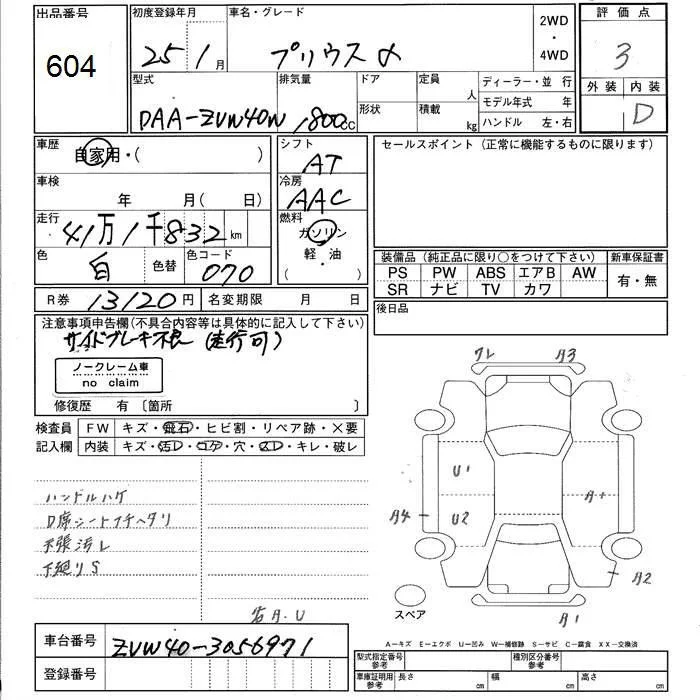 出品番号
604
初度登録年月
25年1月
車名・グレード
プリウスα
2WD
・
4WD
評価点
3
外装 内装
D
型式
DAA-ZVW40W
排気量
1800cc
ドア
形状
定員
人
積載
kg
ディーラー・並行
モデル年式 年
ハンドル 左・右
車歴
自家用・( )
シフト
AT
セールスポイント(正常に機能するものに限ります)
車検
年 月(日)
冷房
AAC
走行
41万1千832km
燃料
ガソリン
軽・油
( ・ )
色
白
色替
色コード
070
装備品(純正品に限り○をつけて下さい)
新車保証書
PS PW ABS エアB AW
SR ナビ TV カワ
有・無
R券 13120円
名変期限 月 日
後日品
注意事項申告欄(不具合内容等は具体的に記入して下さい)
サイドブレーキ不良 (走行可)
ノークレーム車
no claim
修復歴 有〔箇所 〕
検査員
記入欄
FW キズ・飛石・ヒビ割・リペア跡・×要
内装 キズ・汚D・コゲ・穴・スD・キレ・破レ
ハンドルハゲ
D席シートフチヘタリ
天張汚レ
下廻りS
ワレ
A3
U1
U2
A4
A+
A2
A1
スペア
A-キズ E-エクボ U-凹み W-補修跡 S-サビ C-腐食 XX-交換済
車台番号
ZVW40-3056971
登録番号
型式指定番号
参考
種別区分番号
参考
車庫証明用
参考
長さ cm
幅 cm
高さ cm